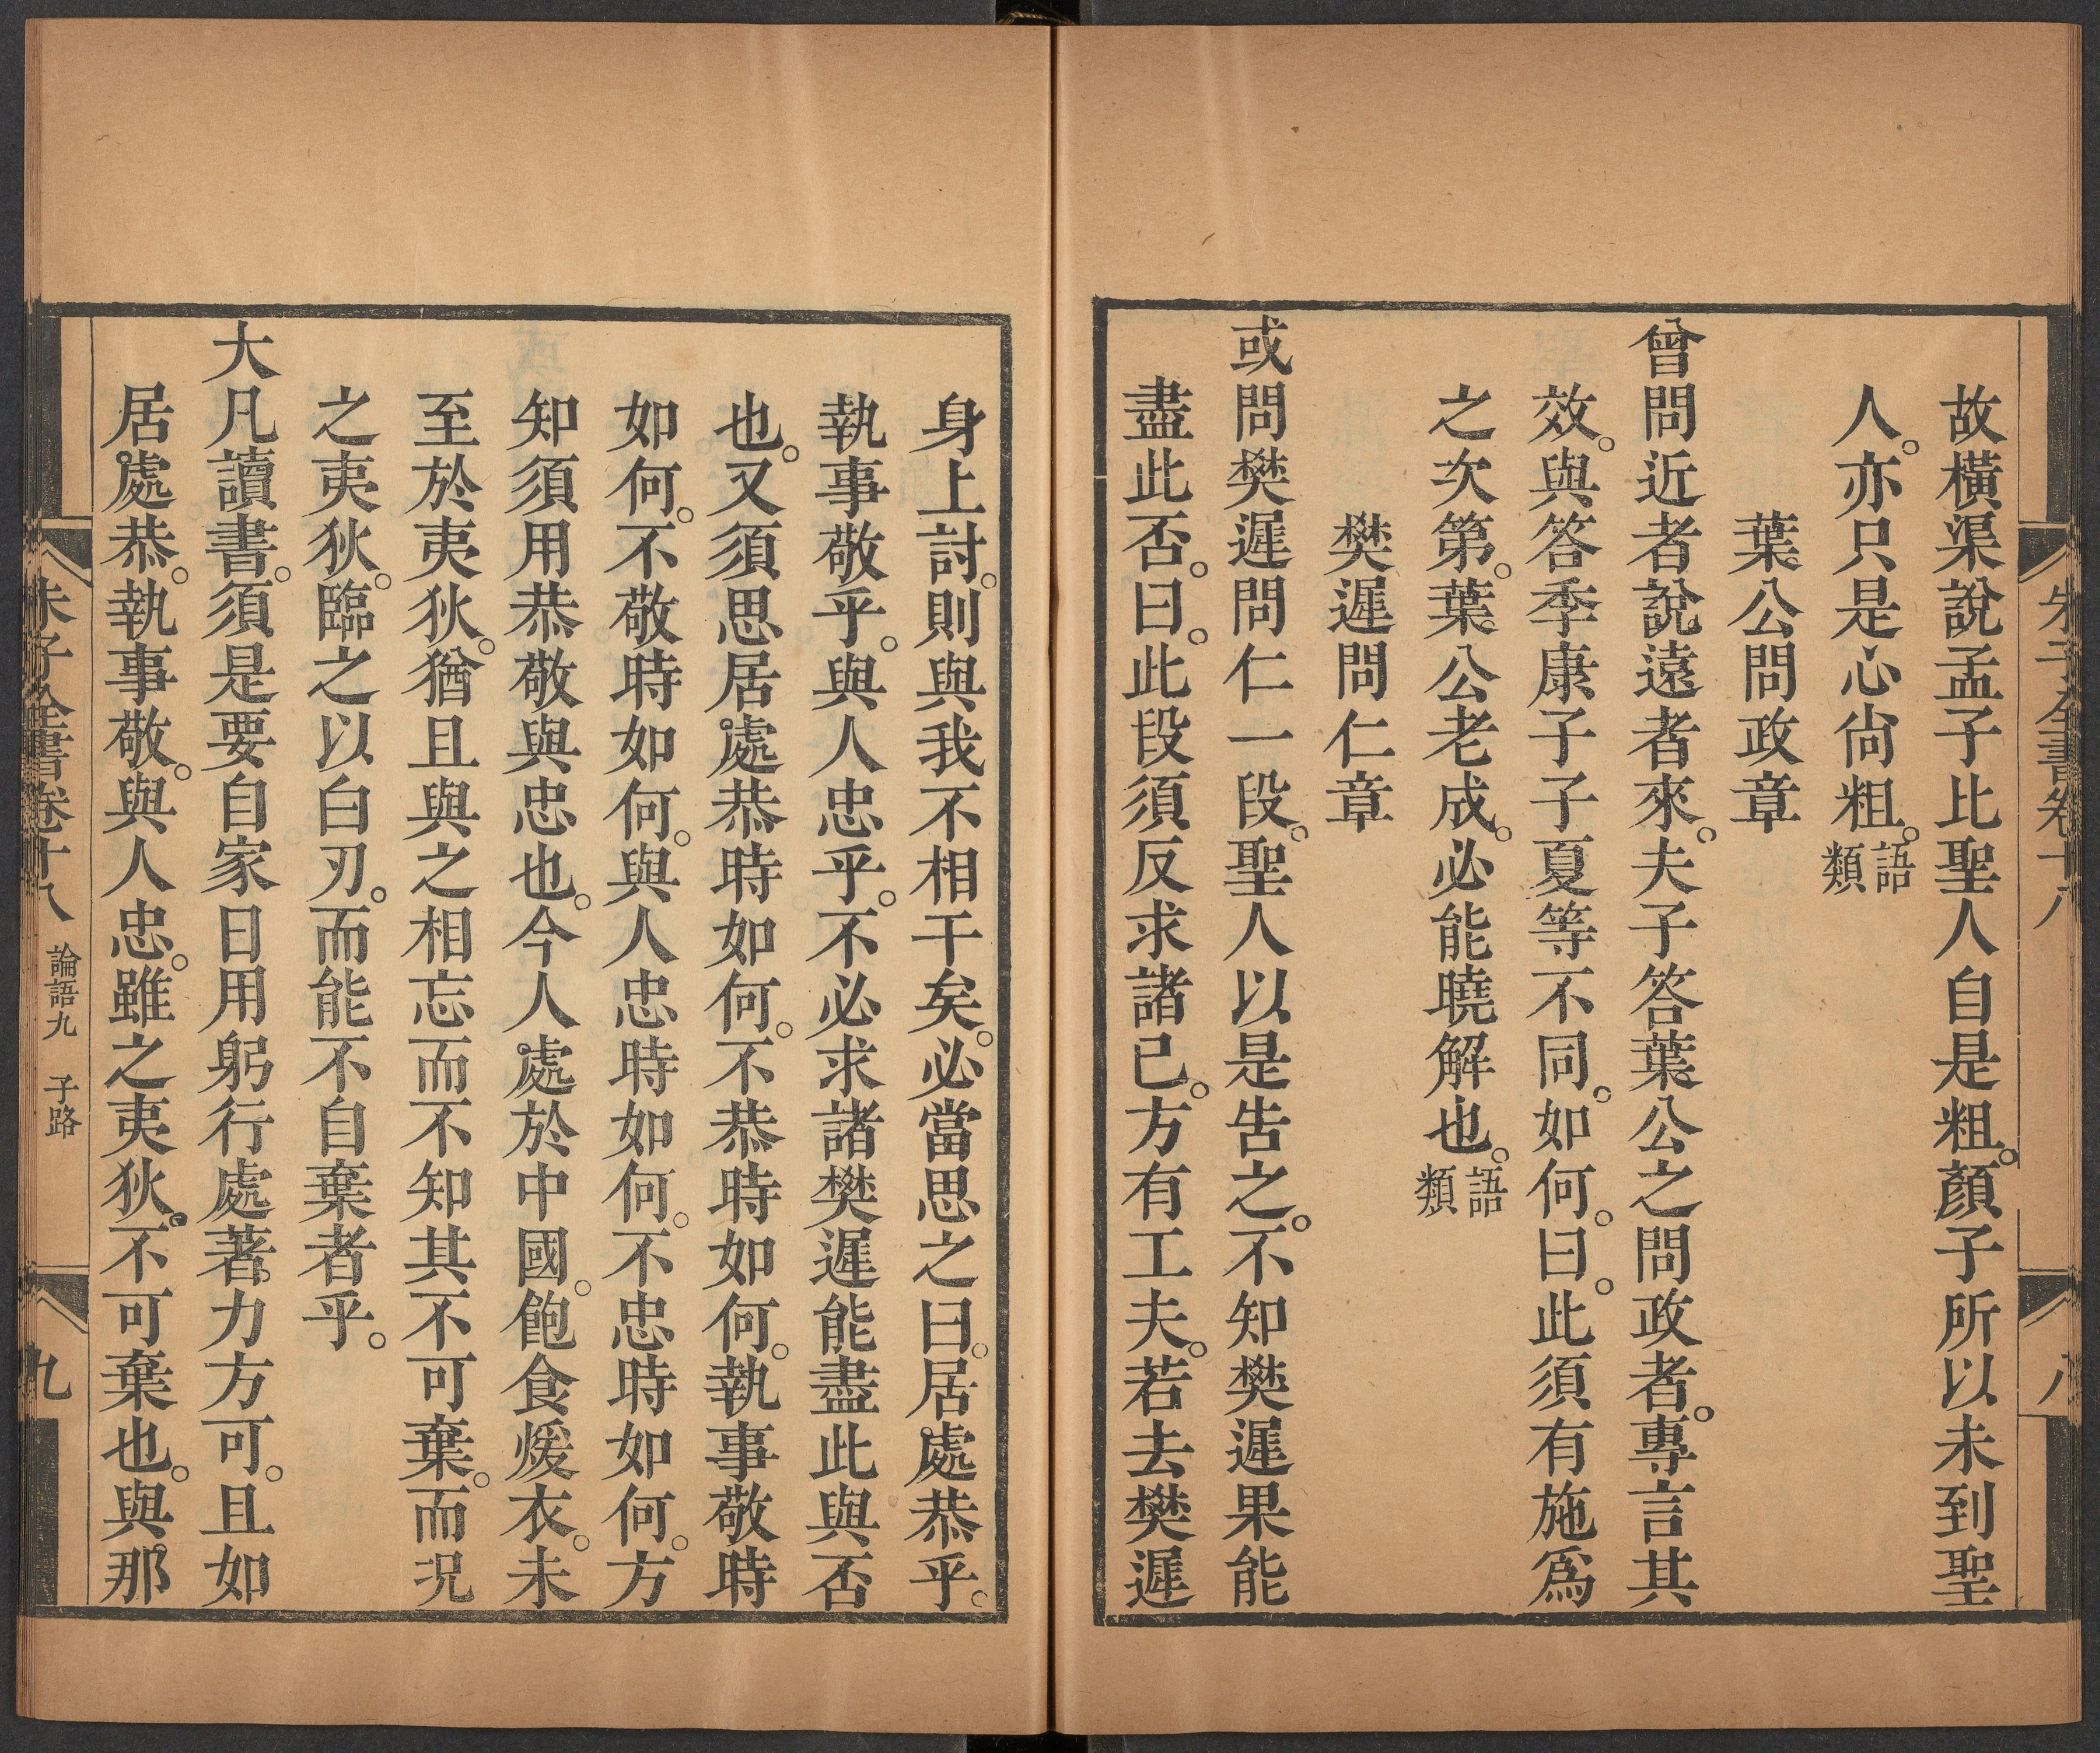 故橫渠說孟子比聖人自是粗。顏子所以未到聖
人。亦只是心尙粗。語類
葉公問政章
曾問近者說遠者來。夫子答葉公之問政者。專言其
效。與答季康子子夏等不同。如何。曰。此須有施爲
之次第。葉公老成。必能曉解也。語類
樊遲問仁章
或問樊遲問仁一段。聖人以是告之。不知樊遲果能
盡此否。曰。此段須反求諸己。方有工夫。若去樊遲
朱子全書卷十八
八
身上討。則與我不相干矣。必當思之曰。居處恭乎。
執事敬乎。與人忠乎。不必求諸樊遲能盡此與否
也。又須思居處恭時如何。不恭時如何。執事敬時
如何。不敬時如何。與人忠時如何。不忠時如何。方
知須用恭敬與忠也。今人處於中國。飽食煖衣。未
至於夷狄。猶且與之相忘而不知其不可棄。而況
之夷狄。臨之以白刃。而能不自棄者乎。
大凡讀書。須是要自家日用躬行處著力方可。且如
居處恭。執事敬。與人忠。雖之夷狄。不可棄也。與那
朱子全書卷十八 論語九 子路
九